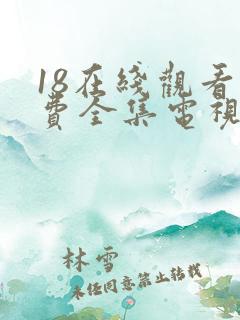 18在綫觀看
費全集電視
林雪
未经同意禁止转载